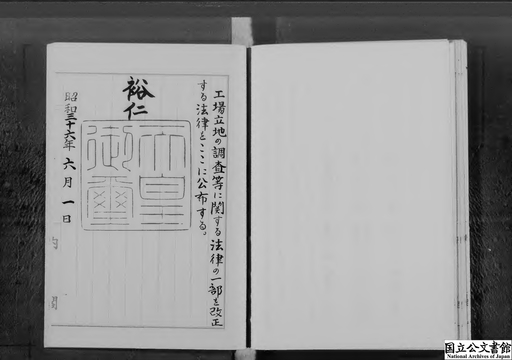 工場立地の調査等に関する法律の一部を改正
する法律をここに公布する。
裕仁
天皇
御璽
昭和三十六年六月一日
国立公文書館
National Archives of Japan